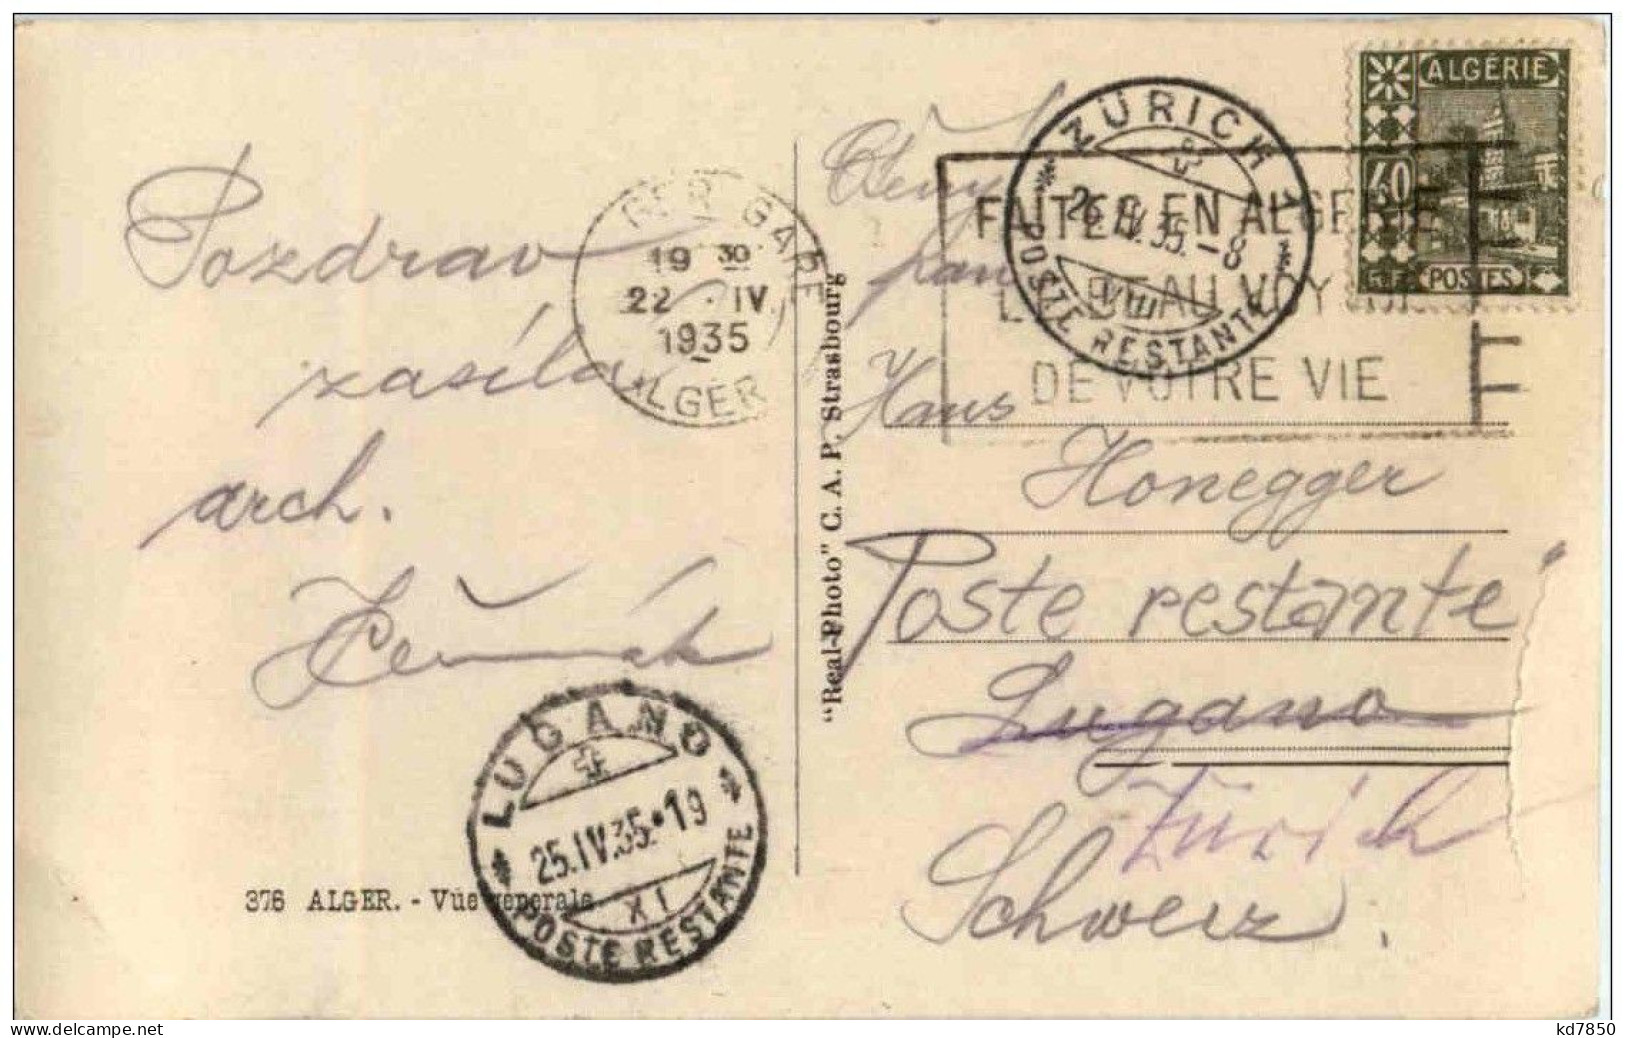 Pozdrav
zasílá
arch.
Čermák
376 ALGER. - Vue generale
"Real-Photo" C. A. P. Strasbourg
ALGER GARE
19 30
22 · IV
1935
ALGER
FAITES EN ALGERIE
LE BEAU VOYAGE
DE VOTRE VIE
ZÜRICH 1
26.IV.35.-8
VIII
POSTE RESTANTE
ALGÉRIE
40
POSTES
pan
Hans
Honegger
Poste restante
Lugano
Zürich
Schweiz
LUGANO
25.IV.35.·19
XI
POSTE RESTANTE
kd7850
www.delcampe.net